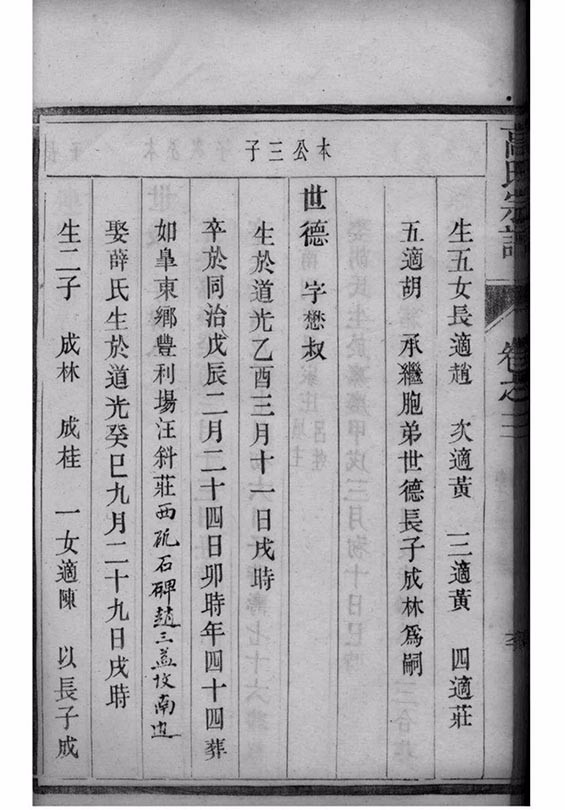 高氏宗譜
卷之三
生五女長適趙 次適黃 三適黃 四適莊
五適胡 承繼胞弟世德長子成林為嗣
本公三子
世德 字懋叔
生於道光乙酉三月十一日戌時
卒於同治戊辰二月二十四日卯時年四十四葬
如臯東鄉豐利場汪斜莊西砥石碑趙三益坟南边
娶薛氏生於道光癸巳九月二十九日戌時
生二子 成林 成桂 一女適陳 以長子成